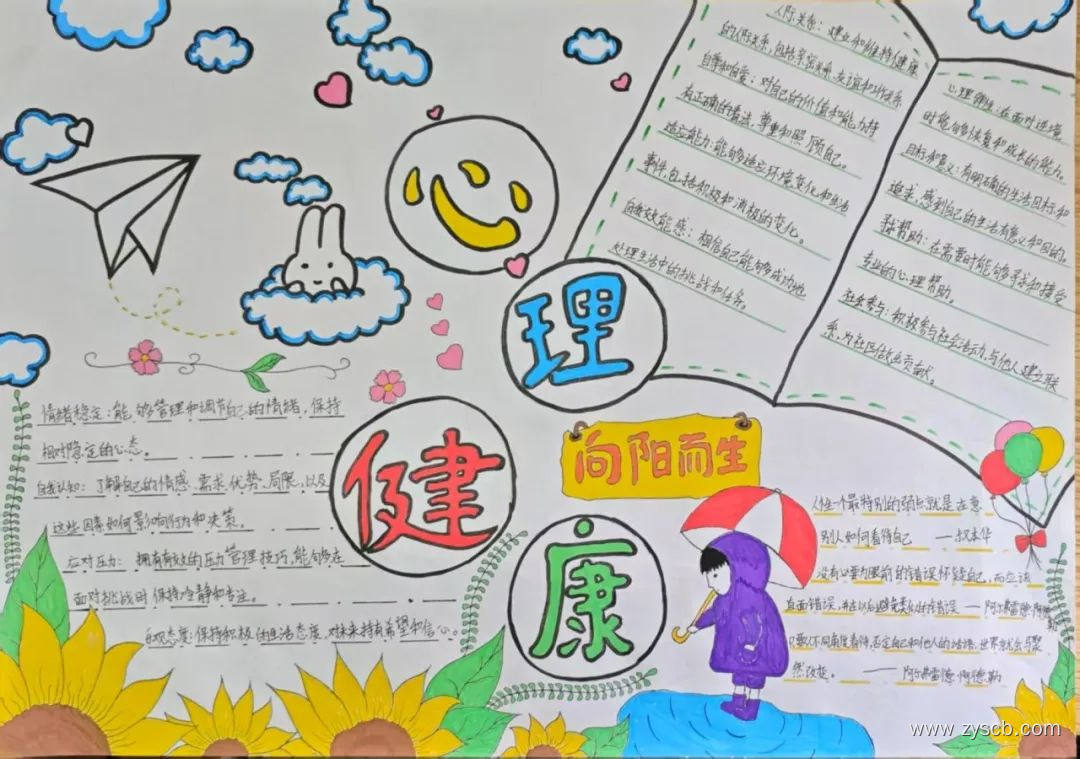 心
理
健
康
向阳而生
人际关系：建立和维持健康
的人际关系，包括亲密关系、友谊和工作关系
自尊和自爱：对自己的价值和能力持
有正确的看法，尊重和照顾自己。
适应能力：能够适应环境变化和生活
事件，包括积极和消极的变化。
自我效能感：相信自己能够成功地
处理生活中的挑战和任务。
心理弹性：在面对逆境
时能够恢复和成长的能力。
目标和意义：有明确的生活目标和
追求，感到自己的生活有意义和目的。
寻求帮助：在需要时能够寻求和接受
专业的心理帮助。
社会参与：积极参与社会活动，与他人建立联
系，为社区做出贡献。
情绪稳定：能够管理和调节自己的情绪，保持
相对稳定的心态。
自我认知：了解自己的情感、需求、优势、局限，以及
这些因素如何影响行为和决策。
应对压力：拥有有效的压力管理技巧，能够在
面对挑战时保持冷静和专注。
乐观态度：保持积极的生活态度，对未来持有希望和信心。
人性一个最特别的弱点就是在意
别人如何看待自己 ——叔本华
没有必要为眼前的错误怀疑自己，而应该
直面错误，并在以后避免类似的错误 ——阿尔弗雷德·阿德勒
只要不用角度看待，否定自己和他人的话语，世界就会与骤
然改变。 ——阿尔弗雷德·阿德勒
www.zyscb.com